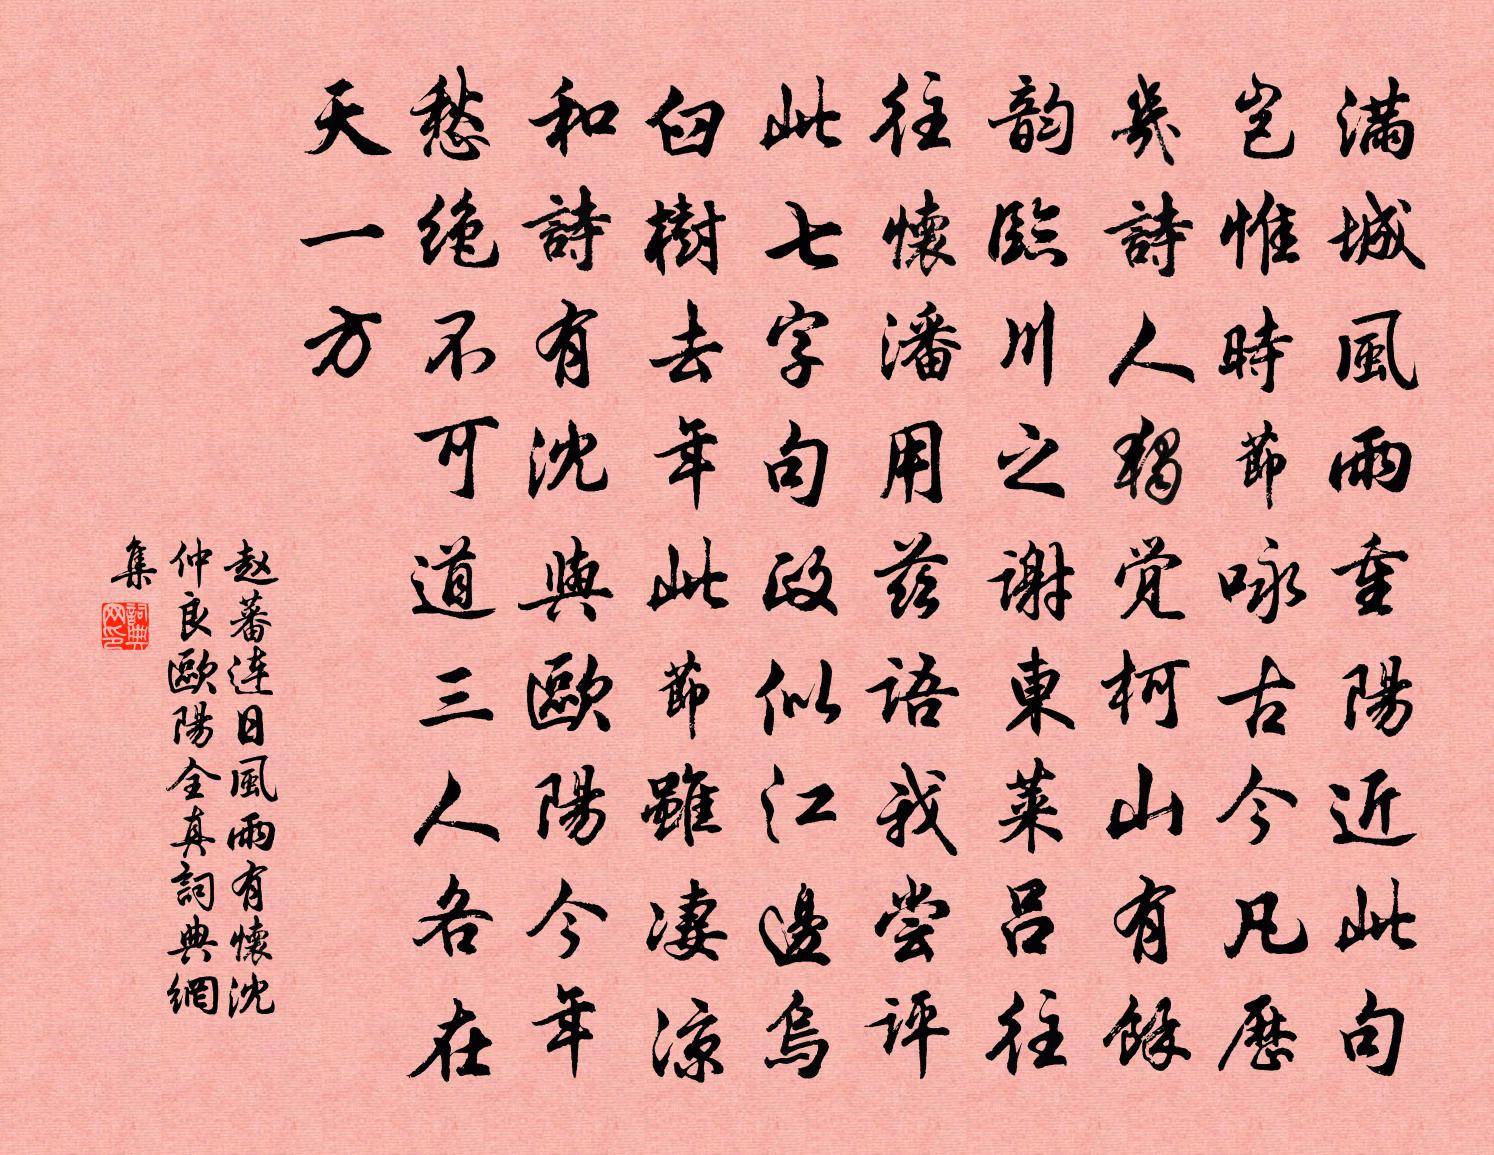 滿城風雨重陽近此句
岂惟時節咏古今凡歷
幾詩人獨觉柯山有餘
韵臨川之謝東萊吕往
往懷潘用兹語我尝评
此七字句政似江邊烏
臼樹去年此節雖凄凉
和詩有沈與歐陽今年
愁绝不可道三人各在
天一方
赵蕃連日風雨有懷沈
仲良歐陽全真詞典網
集
詞典网印